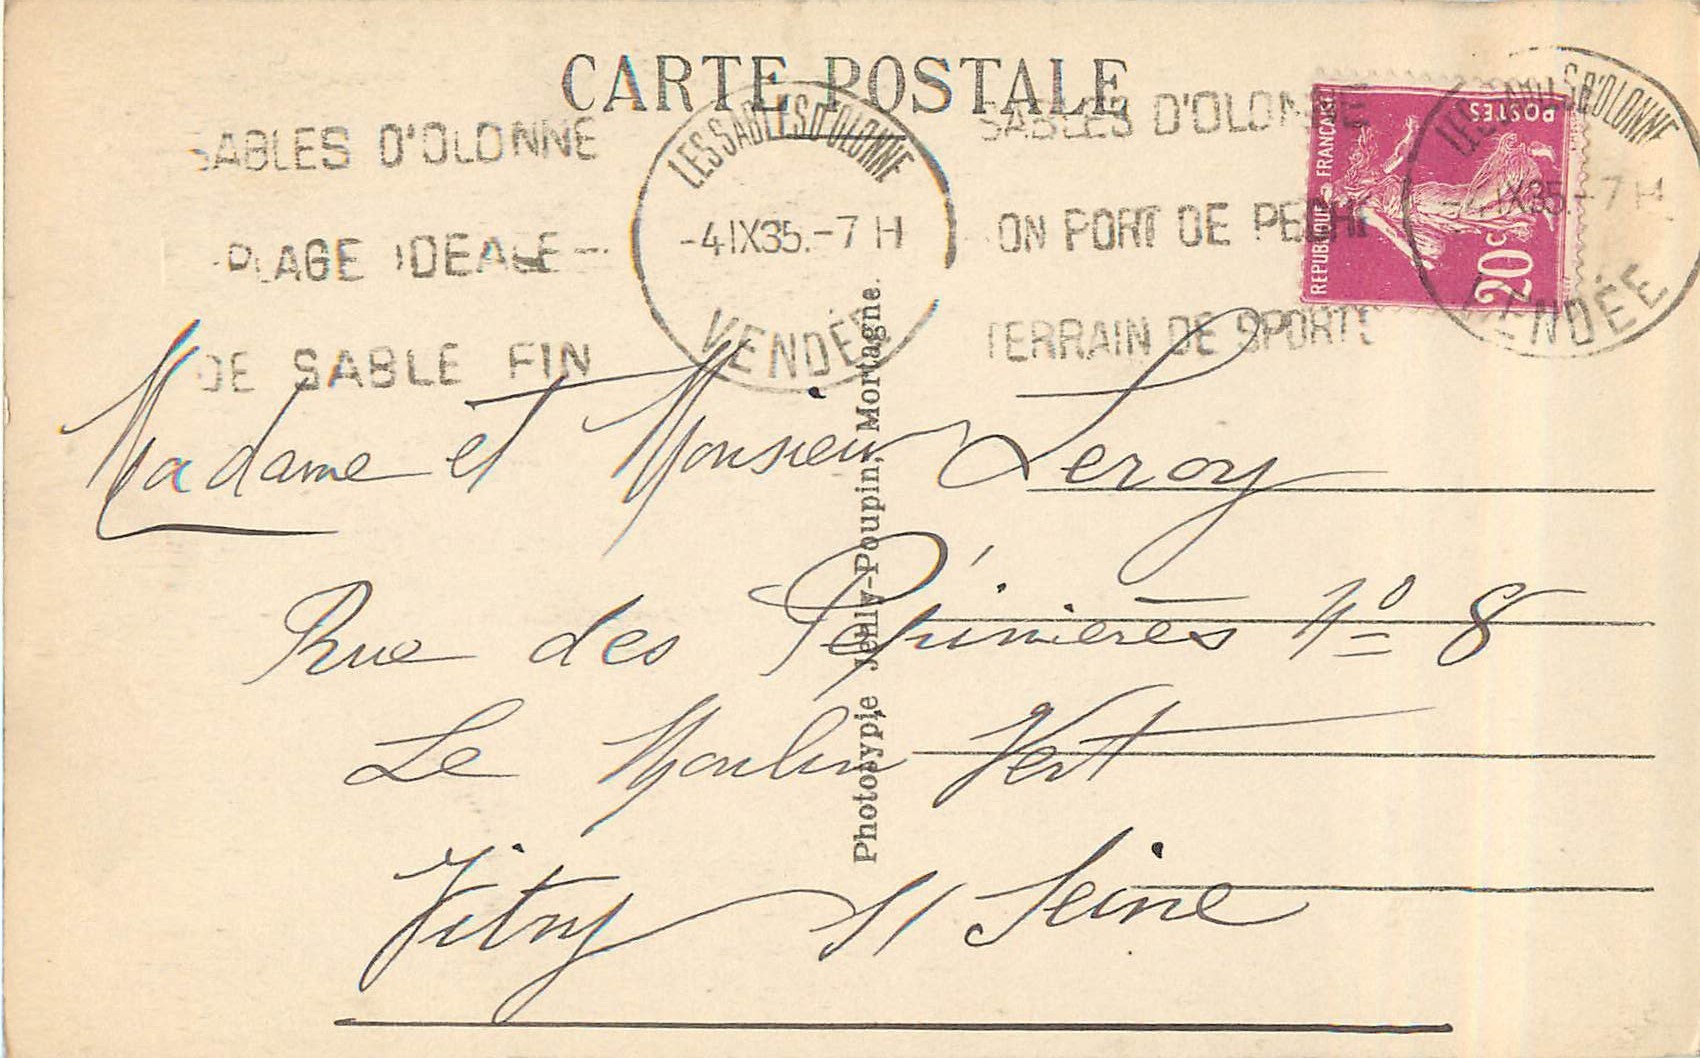 CARTE POSTALE
SABLES D'OLONNE
PLAGE IDEALE
DE SABLE FIN
LES SABLES D'OLONNE
-4 IX 35.-7 H
VENDÉE
SABLES D'OLONNE
ON PORT DE PECHE
TERRAIN DE SPORTS
LES SABLES D'OLONNE
-4 IX 35.-7 H
VENDÉE
REPUBLIQUE FRANÇAISE
POSTES
20c
Madame et Monsieur Leroy
Rue des Pépinières No 8
Le Moulin Vert
Vitry s/ Seine
Phototypie Jehly-Poupin, Mortagne.